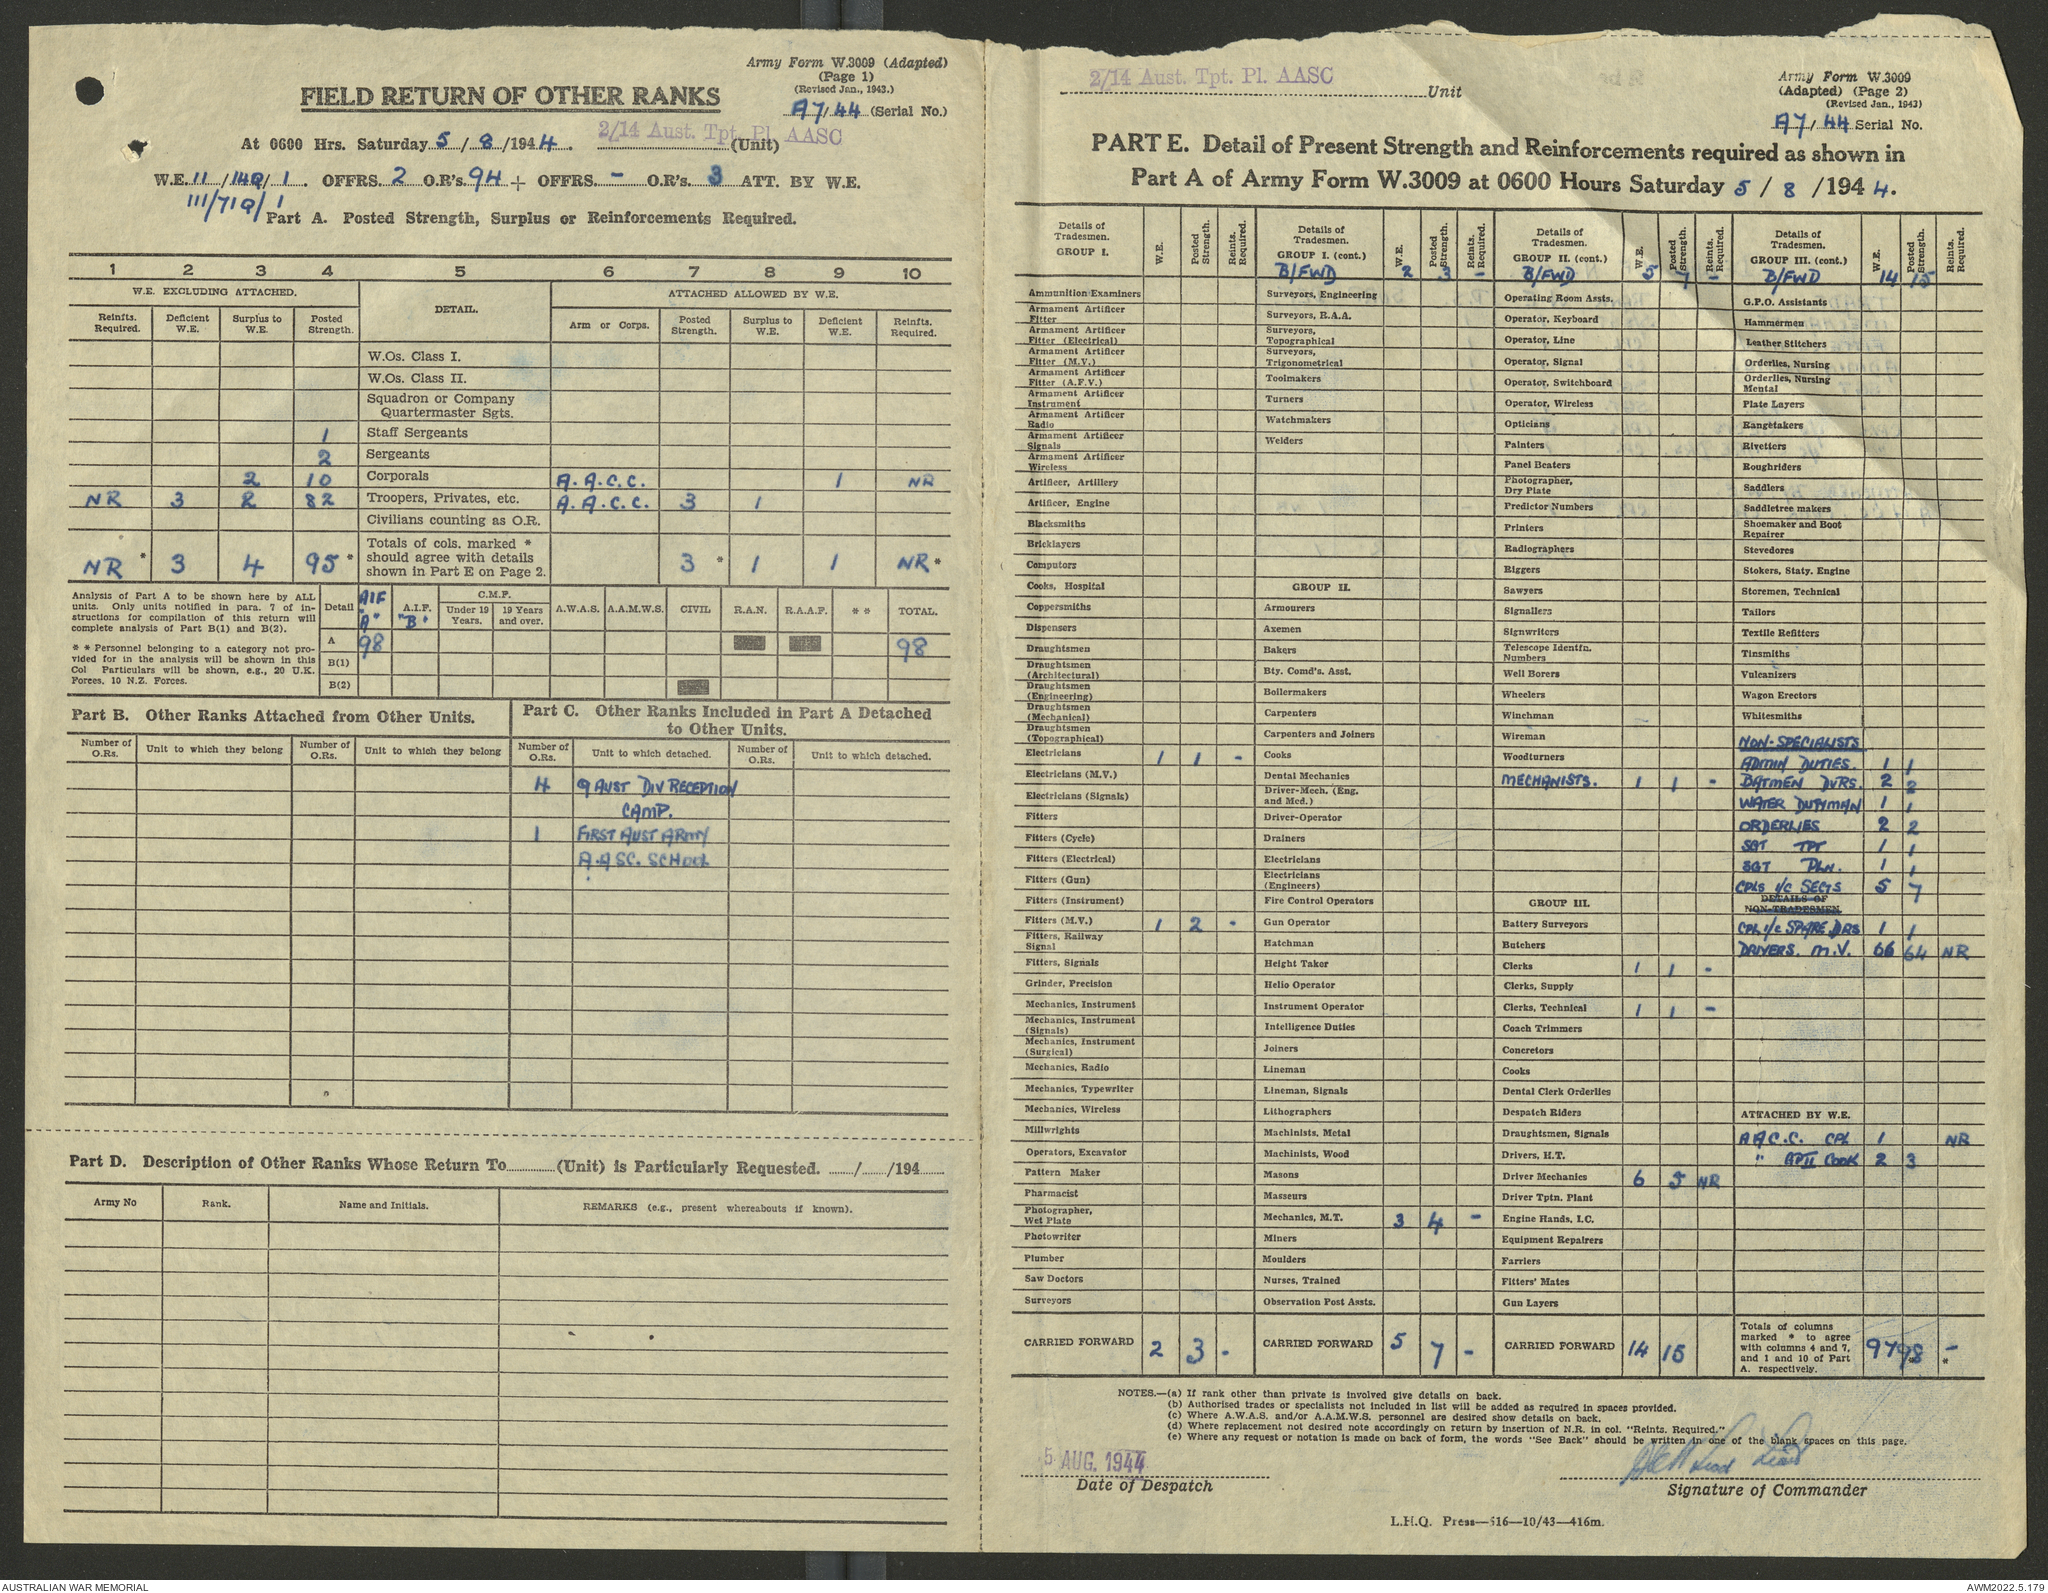 Army Form W.3009 (Adapted)
(Page 1)
(Revised Jan., 1943.)
FIELD RETURN OF OTHER RANKS
A7/44 (Serial No.)
At 0600 Hrs. Saturday 5/8/1944. 2/14 Aust. Tpt. Pl. AASC (Unit)
W.E. 11/140/1. OFFRS. 2 O.R's. 94 + OFFRS. - O.R's. 3 ATT. BY W.E.
111/71Q/1
Part A. Posted Strength, Surplus or Reinforcements Required.
1 2 3 4 5 6 7 8 9 10
W.E. EXCLUDING ATTACHED. DETAIL. ATTACHED ALLOWED BY W.E.
Reinfts. Required. Deficient W.E. Surplus to W.E. Posted Strength. Arm or Corps. Posted Strength. Surplus to W.E. Deficient W.E. Reinfts. Required.
W.Os. Class I.
W.Os. Class II.
Squadron or Company Quartermaster Sgts.
1 Staff Sergeants
2 Sergeants
2 10 Corporals A.A.C.C. 1 NR
NR 3 2 82 Troopers, Privates, etc. A.A.C.C. 3 1
Civilians counting as O.R.
NR * 3 4 95 * Totals of cols. marked * should agree with details shown in Part E on Page 2. 3 * 1 1 NR *
Analysis of Part A to be shown here by ALL units. Only units notified in para. 7 of instructions for compilation of this return will complete analysis of Part B(1) and B(2).
* * Personnel belonging to a category not provided for in the analysis will be shown in this Col Particulars will be shown, e.g., 20 U.K. Forces, 10 N.Z. Forces.
Detail AIF "A" A.I.F. "B" C.M.F. Under 19 Years. 19 Years and over. A.W.A.S. A.A.M.W.S. CIVIL R.A.N. R.A.A.F. * * TOTAL.
A 98 98
B(1)
B(2)
Part B. Other Ranks Attached from Other Units.
Number of O.Rs. Unit to which they belong Number of O.Rs. Unit to which they belong
Part C. Other Ranks Included in Part A Detached to Other Units.
Number of O.Rs. Unit to which detached. Number of O.Rs. Unit to which detached.
4 9 AUST DIV RECEPTION
CAMP.
1 FIRST AUST ARMY
A.ASC. SCHOOL
Part D. Description of Other Ranks Whose Return To (Unit) is Particularly Requested. / /194
Army No Rank. Name and Initials. REMARKS (e.g., present whereabouts if known).
2/14 Aust. Tpt. Pl. AASC Unit
Army Form W.3009
(Adapted) (Page 2)
(Revised Jan., 1943)
A7/44 Serial No.
PART E. Detail of Present Strength and Reinforcements required as shown in
Part A of Army Form W.3009 at 0600 Hours Saturday 5/8/1944.
Details of Tradesmen. GROUP I. W.E. Posted Strength. Reints. Required.
Ammunition Examiners
Armament Artificer Fitter
Armament Artificer Fitter (Electrical)
Armament Artificer Fitter (M.V.)
Armament Artificer Fitter (A.F.V.)
Armament Artificer Instrument
Armament Artificer Radio
Armament Artificer Signals
Armament Artificer Wireless
Artificer, Artillery
Artificer, Engine
Blacksmiths
Bricklayers
Computors
Cooks, Hospital
Coppersmiths
Dispensers
Draughtsmen
Draughtsmen (Architectural)
Draughtsmen (Engineering)
Draughtsmen (Mechanical)
Draughtsmen (Topographical)
Electricians 1 1 -
Electricians (M.V.)
Electricians (Signals)
Fitters
Fitters (Cycle)
Fitters (Electrical)
Fitters (Gun)
Fitters (Instrument)
Fitters (M.V.) 1 2 -
Fitters, Railway Signal
Fitters, Signals
Grinder, Precision
Mechanics, Instrument
Mechanics, Instrument (Signals)
Mechanics, Instrument (Surgical)
Mechanics, Radio
Mechanics, Typewriter
Mechanics, Wireless
Millwrights
Operators, Excavator
Pattern Maker
Pharmacist
Photographer, Wet Plate
Photowriter
Plumber
Saw Doctors
Surveyors
CARRIED FORWARD 2 3 -
Details of Tradesmen. GROUP I. (cont.) W.E. Posted Strength. Reints. Required.
B/FWD 2 3 -
Surveyors, Engineering
Surveyors, R.A.A.
Surveyors, Topographical
Surveyors, Trigonometrical
Toolmakers
Turners
Watchmakers
Welders
GROUP II.
Armourers
Axemen
Bakers
Bty. Comd's. Asst.
Boilermakers
Carpenters
Carpenters and Joiners
Cooks
Dental Mechanics
Driver-Mech. (Eng. and Med.)
Driver-Operator
Drainers
Electricians
Electricians (Engineers)
Fire Control Operators
Gun Operator
Hatchman
Height Taker
Helio Operator
Instrument Operator
Intelligence Duties
Joiners
Lineman
Lineman, Signals
Lithographers
Machinists, Metal
Machinists, Wood
Masons
Masseurs
Mechanics, M.T. 3 4 -
Miners
Moulders
Nurses, Trained
Observation Post Assts.
CARRIED FORWARD 5 7 -
Details of Tradesmen. GROUP II. (cont.) W.E. Posted Strength. Reints. Required.
B/FWD 5 7 -
Operating Room Assts.
Operator, Keyboard
Operator, Line
Operator, Signal
Operator, Switchboard
Operator, Wireless
Opticians
Painters
Panel Beaters
Photographer, Dry Plate
Predictor Numbers
Printers
Radiographers
Riggers
Sawyers
Signallers
Signwriters
Telescope Identfn. Numbers
Well Borers
Wheelers
Winchman
Wireman
Woodturners
MECHANISTS. 1 1 -
GROUP III.
Battery Surveyors
Butchers
Clerks 1 1 -
Clerks, Supply
Clerks, Technical 1 1 -
Coach Trimmers
Concretors
Cooks
Dental Clerk Orderlies
Despatch Riders
Draughtsmen, Signals
Drivers, H.T.
Driver Mechanics 6 5 NR
Driver Tptn. Plant
Engine Hands, I.C.
Equipment Repairers
Farriers
Fitters' Mates
Gun Layers
CARRIED FORWARD 14 15
Details of Tradesmen. GROUP III. (cont.) W.E. Posted Strength. Reints. Required.
B/FWD 14 15
G.P.O. Assistants
Hammermen
Leather Stitchers
Orderlies, Nursing
Orderlies, Nursing Mental
Plate Layers
Rangetakers
Rivetters
Roughriders
Saddlers
Saddletree makers
Shoemaker and Boot Repairer
Stevedores
Stokers, Staty. Engine
Storemen, Technical
Tailors
Textile Refitters
Tinsmiths
Vulcanizers
Wagon Erectors
Whitesmiths
NON-SPECIALISTS
ADMIN DUTIES. 1 1
BATMEN DVRS. 2 2
WATER DUTYMAN 1 1
ORDERLIES 2 2
SGT TPT 1 1
SGT PLN. 1 1
CPLS i/c SECTS 5 7
DETAILS OF NON-TRADESMEN
CPL i/c SPARE DRS 1 1
DRIVERS. M.V. 66 64 NR
ATTACHED BY W.E.
AAC.C. CPL 1 NR
" GP II COOK 2 3
Totals of columns marked * to agree with columns 4 and 7, and 1 and 10 of Part A. respectively. 97 98 * - *
NOTES.—(a) If rank other than private is involved give details on back.
(b) Authorised trades or specialists not included in list will be added as required in spaces provided.
(c) Where A.W.A.S. and/or A.A.M.W.S. personnel are desired show details on back.
(d) Where replacement not desired note accordingly on return by insertion of N.R. in col. "Reints. Required."
(e) Where any request or notation is made on back of form, the words "See Back" should be written in one of the blank spaces on this page.
5 AUG. 1944
Date of Despatch
Signature of Commander
L.H.Q. Press—516—10/43—416m.
AUSTRALIAN WAR MEMORIAL
AWM2022.5.179